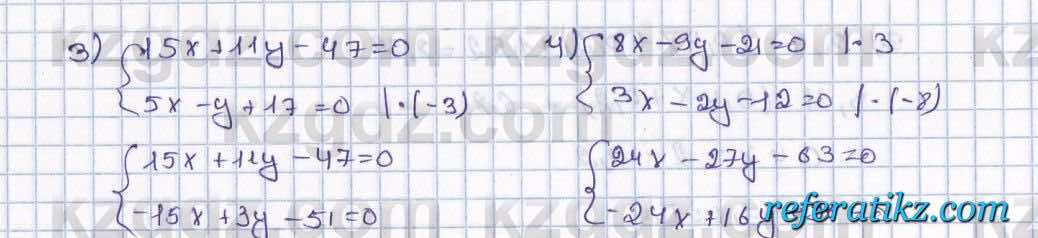 3) { 15x + 11y - 47 = 0
5x - y + 17 = 0 | · (-3)
{ 15x + 11y - 47 = 0
-15x + 3y - 51 = 0
4) { 8x - 9y - 21 = 0 | · 3
3x - 2y - 12 = 0 | · (-8)
{ 24x - 27y - 63 = 0
-24x + 16y
referatikz.com
kzgdz.com